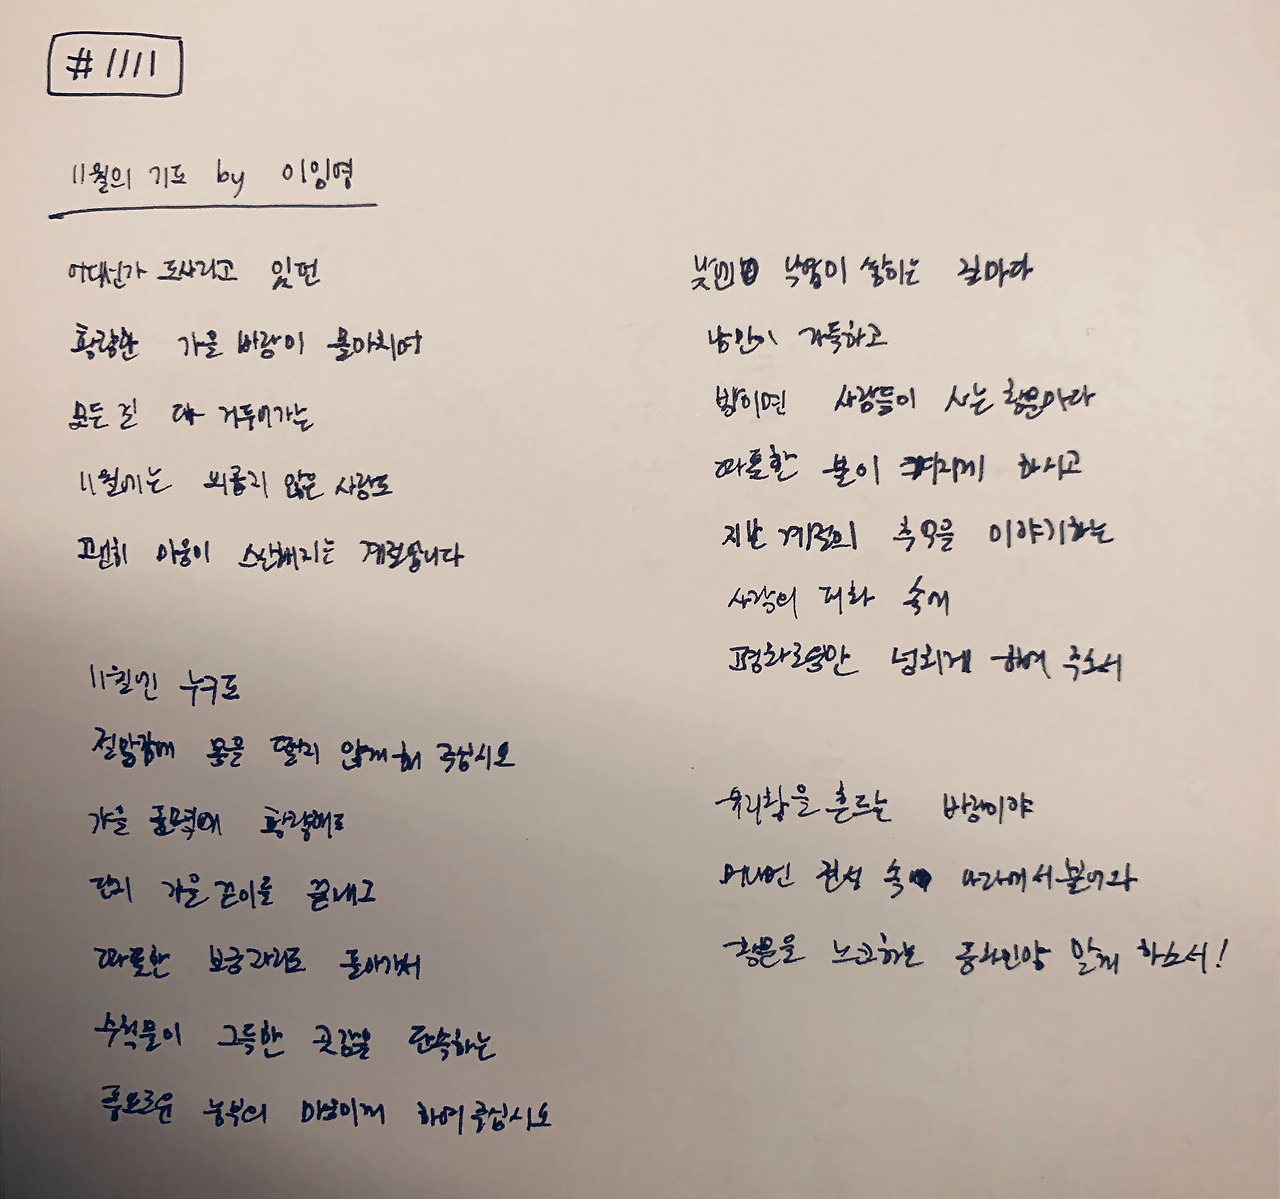 #1111
11월의 기도 by 이임영
어디선가 도사리고 있던
황량한 가을 바람이 몰아치며
모든 걸 다 거두어가는
11월에는 외롭지 않은 사람도
괜히 마음이 스산해지는 계절입니다
11월엔 누구도
절망감에 몸을 떨지 않게 해 주십시오
가을 들녘에 황량해도
단지 가을걷이를 끝내고
따뜻한 보금자리로 돌아가서
수확물이 그득한 곳간을 단속하는
풍요로운 농부의 마음이게 하여 주십시오
낮엔 낙엽이 쌓이는 길마다
낭만이 가득하고
밤이면 사람들이 사는 창문마다
따뜻한 불이 켜지게 하시고
지난 계절의 추억을 이야기하는
사랑의 대화 속에
평화로움만 넘치게 하여 주소서
유리창을 흔드는 바람이야
머나먼 전설 속 나라에서 불어와
창문을 노크하는 동화인양 알게 하소서!